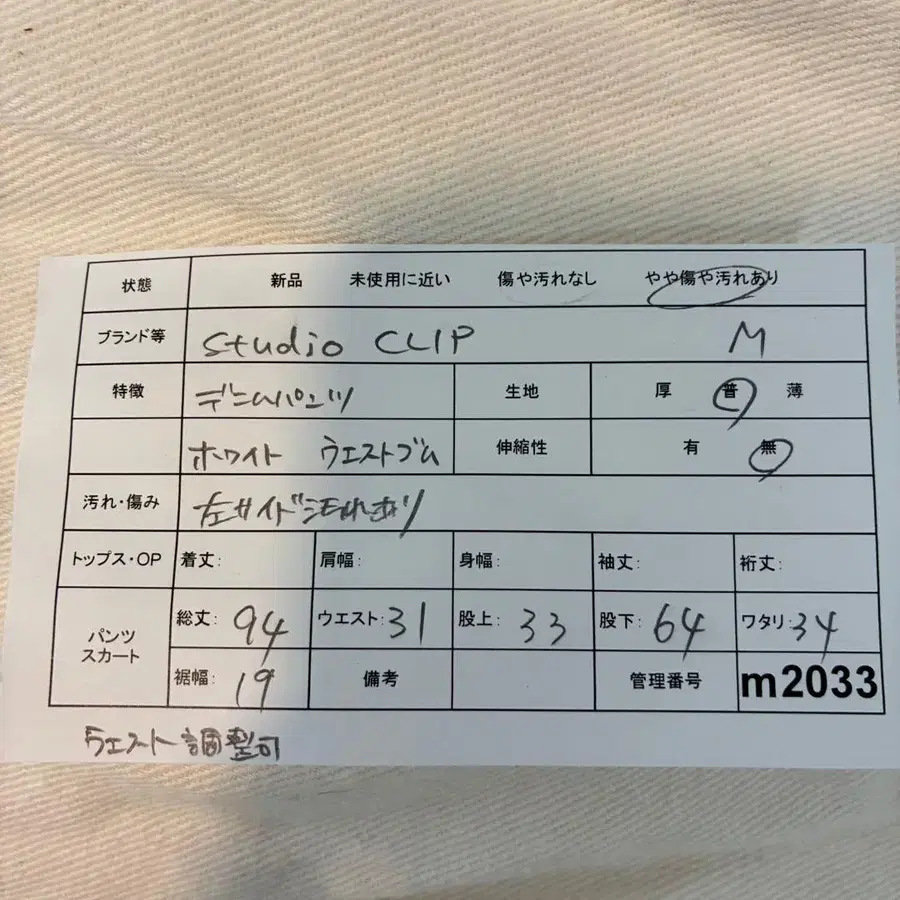 状態 新品 未使用に近い 傷や汚れなし やや傷や汚れあり
ブランド等 studio CLIP M
特徴 デニムパンツ 生地 厚 普 薄
ホワイト ウエストゴム 伸縮性 有 無
汚れ・傷み 左サイド汚れあり
トップス・OP 着丈: 肩幅: 身幅: 袖丈: 裄丈:
パンツ スカート 総丈: 94 ウエスト: 31 股上: 33 股下: 64 ワタリ: 34
裾幅: 19 備考 管理番号 m2033
ウエスト調整可